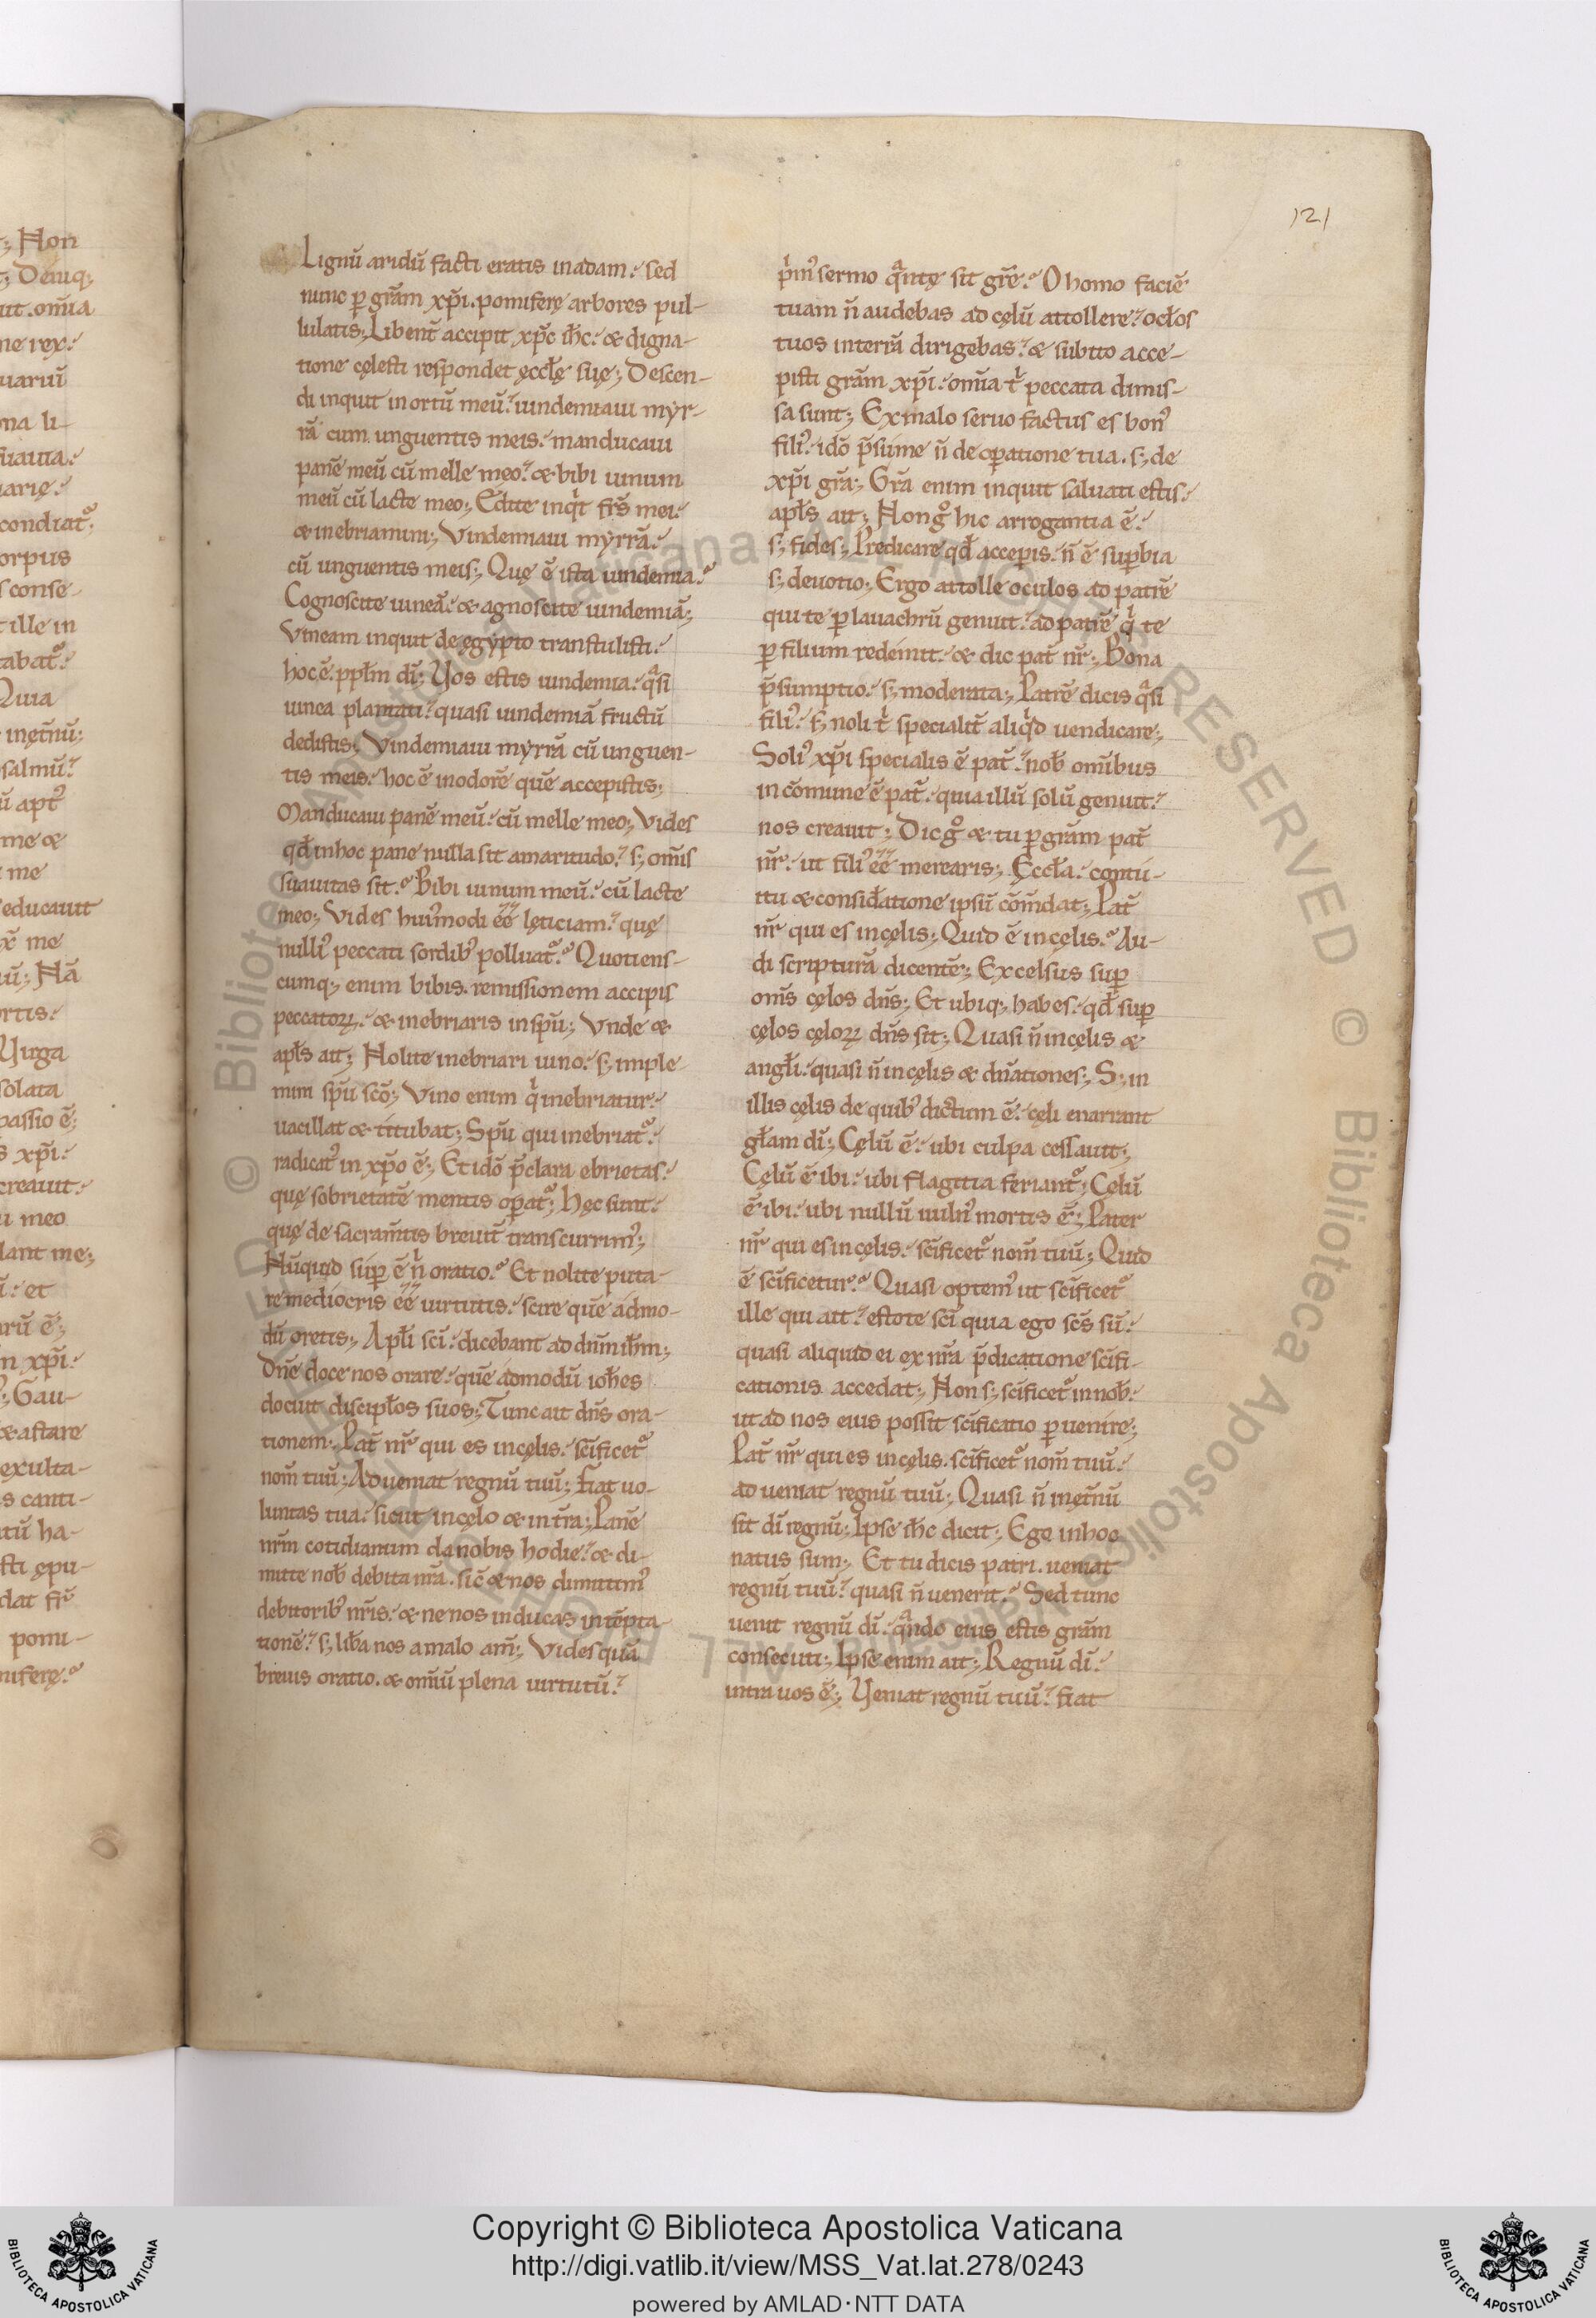 ; Non
; Deniq;
ut. om̄ia
ne rex.
uariū
ona li-
suauia.
uarię.
condiat᷑;
orpus
s conse-
t ille in
tabat᷑.
Quia
inęt̄nū;
salmū.
ū apt᷑
me &
me
educauit
me
ū; Nā
ortis.
Virga
solata
passio ē;
s xp̄i.
creauit.
u meo
lant me;
ū. et
arū ē;
n xp̄i.
; Gau-
& astare
exulta-
s canti-
tū ha-
sti ępu-
dat fr̄
pomi-
niferę.
121
Lignū aridū facti eratis inadam. sed
nunc ꝑ grām xp̄i. pomiferę arbores pul-
lulatis; Liben̄t accipit xp̄c ih̄c. & digna-
tione cęlesti respondet ęcclę suę; Descen-
di inquit in ortū meū. uindemiaui myr-
rā cum unguentis meis. manducaui
panē meū cū melle meo. & bibi uinum
meū cū lacte meo; Edite inqͥt fr̄s mei.
& inebriamini; Vindemiaui myrrā.
cū unguentis meis; Quę ē ista uindemia.
Cognoscite uineā. & agnoscite uindemiā;
Vineam inquit de ęgypto transtulisti.
hoc ē. pplm dī; Vos estis uindemia. qͣsi
uinea plantati. quasi uindemiā fructū
dedistis; Vindemiaui myrrā cū unguen-
tis meis. hoc ē inodorē quē accepistis;
Manducaui panē meū. cū melle meo; Vides
qd̄ inhoc pane nulla sit amaritudo. s; om̄is
suauitas sit. Bibi uinum meū. cū lacte
meo; Vides huiꝰmodi ēē lęticiam. quę
nulliꝰ peccati sordibꝰ polluat᷑. Quotiens-
cumq; enim bibis. remissionem accipis
peccatoꝝ. & inebriaris in spū; Vnde &
apls ait; Nolite inebriari uino. s; imple
mini spū scō; Vino enim qͥ inebriatur.
uacillat & titubat; Spū qui inebriat᷑.
radicatꝰ in xp̄o ē; Et idō p̄clara ebrietas.
quę sobrietatē mentis opat᷑; Hęc sunt.
quę de sacram̄tis breuit̄ transcurrimꝰ;
Nūquid suꝑ ē ñ oratio. Et nolite puta-
re mediocris ēē uirtutis. scire quē admo-
dū oretis; Apl̄i scī. dicebant ad dn̄m ih̄m;
Dn̄e doce nos orare. quē admodū ioh̄es
docuit discipl̄os suos; Tunc ait dn̄s ora-
tionem; Pat̄ nr̄ qui es incęlis. scīficet᷑
nom̄ tuū; Adueniat regnū tuū; Fiat uo-
luntas tua. sicut incęlo & in t̄ra; Panē
nr̄m cotidianum da nobis hodie. & di-
mitte nob̄ debita nr̄a. sic̄ & nos dimittimꝰ
debitoribꝰ nr̄is. & ne nos inducas intēpta
tionē. s; lib̄a nos a malo am̄; Vides quā
breuis oratio. & om̄iū plena uirtutū.
pͥmꝰ sermo qͣntę sit gr̄ę. O homo faciē
tuam ñ audebas ad cęlū attollere. ocl̄os
tuos interrā dirigebas. & subito acce-
pisti grām xp̄i. om̄ia tͥ peccata dimis-
sa sunt; Ex malo seruo factus es bonꝰ
filiꝰ. idō p̄sume ñ de opatione tua. s; de
xp̄i gr̄a; Gr̄a enim inquit saluati estis.
apl̄s ait; Non gͦ hic arrogantia ē.
s; fides; Predicare qd̄ acceperis. ñ ē supbia
s; deuotio; Ergo attolle oculos ad patrē
qui te ꝑ lauachrū genuit. ad patrē qͥ te
ꝑ filium redemit. & dic pat̄ nr̄; Bona
p̄sumptio. s; moderata; Patrē dicis qͣsi
filiꝰ. s; noli tͥ specialit̄ aliqͥd uendicare;
Soliꝰ xp̄i specialis ē pat̄. nob̄ om̄ibus
in cōmune ē pat̄. quia illū solū genuit.
nos creauit; Dic gͦ & tu ꝑ grām pat̄
nr̄. ut filiꝰ ēē merearis; Ęccl̄a. contu-
itu & consid̄atione ipsiū cōm̄dat; Pat̄
nr̄ qui es incęlis; Quid ē incęlis. Au-
di scripturā dicentē; Excelsus suꝑ
om̄s cęlos dn̄s; Et ubiq; habes. qd̄ suꝑ
cęlos cęloꝝ dn̄s sit; Quasi ñ incęlis &
angl̄i. quasi ñ incęlis & dn̄ationes; S; in
illis cęlis de quibꝰ dictum ē. cęli enarrant
gl̄am dī; Cęlū ē. ubi culpa cessauit;
Cęlū ē ibi. ubi flagitia feriant᷑; Cęlū
ē ibi. ubi nullū uulnꝰ mortis ē; Pater
nr̄ qui es incęlis. scīficet᷑ nom̄ tuū; Quid
ē scīficetur. Quasi optemꝰ ut scīficet᷑
ille qui ait. estote scī quia ego scs̄ sū.
quasi aliquid ei ex nr̄a p̄dicatione scīfi-
cationis accedat; Non s; scīficet᷑ innob̄.
ut ad nos eius possit scīficatio ꝑuenire;
Pat̄ nr̄ qui es incęlis. scīficet᷑ nom̄ tuū.
ad ueniat regnū tuū; Quasi ñ inęt̄nū
sit dī regnū; Ipse ih̄c dicit; Ego inhoc
natus sum; Et tu dicis patri. ueniat
regnū tuū. quasi ñ uenerit. Sed tunc
uenit regnū dī. qͣndo eius estis grām
consecuti; Ipse enim ait; Regnū dī.
intra uos ē; Veniat regnū tuū. fiat
© Biblioteca Apostolica Vaticana ALL RIGHTS RESERVED © Biblioteca Apostolica Vaticana ALL RIGHTS RESERVED
Copyright © Biblioteca Apostolica Vaticana
http://digi.vatlib.it/view/MSS_Vat.lat.278/0243
powered by AMLAD·NTT DATA
BIBLIOTECA APOSTOLICA VATICANA
BIBLIOTECA APOSTOLICA VATICANA